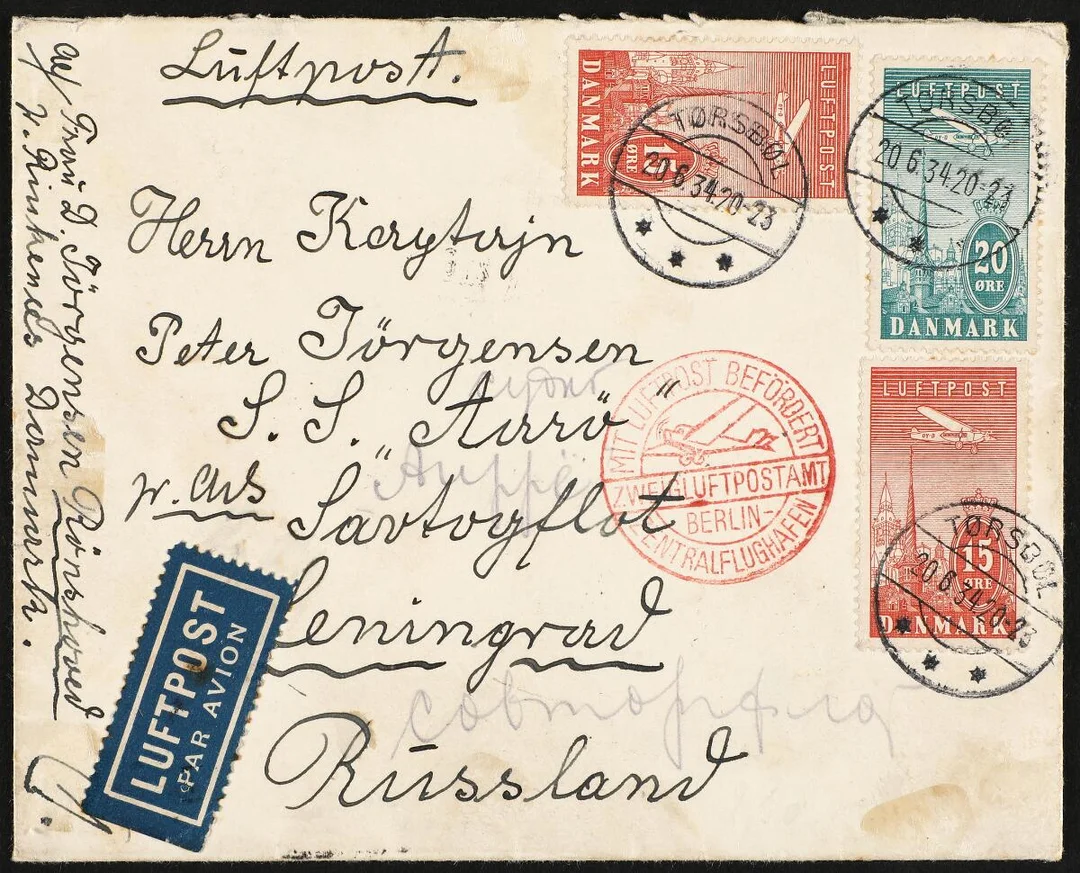 Luftpost.
Herrn Kaytajn
Peter Jörgensen
S. S. „Aarö"
p. Ads „Sovtogflot"
Leningrad
Russland
Frau D. Jörgensen Rönshoved
p. Rinkenes Danmark.
LUFTPOST
PAR AVION
LUFTPOST
15 ØRE
DANMARK
LUFTPOST
20 ØRE
DANMARK
LUFTPOST
15 ØRE
DANMARK
TØRSBØL
20.6.34.20-23
TØRSBØL
20.6.34.20-23
TØRSBØL
20.6.34.20-23
MIT LUFTPOST BEFÖRDERT
ZWEIGLUFTPOSTAMT
BERLIN-
ZENTRALFLUGHAFEN
судно
совторгфлот